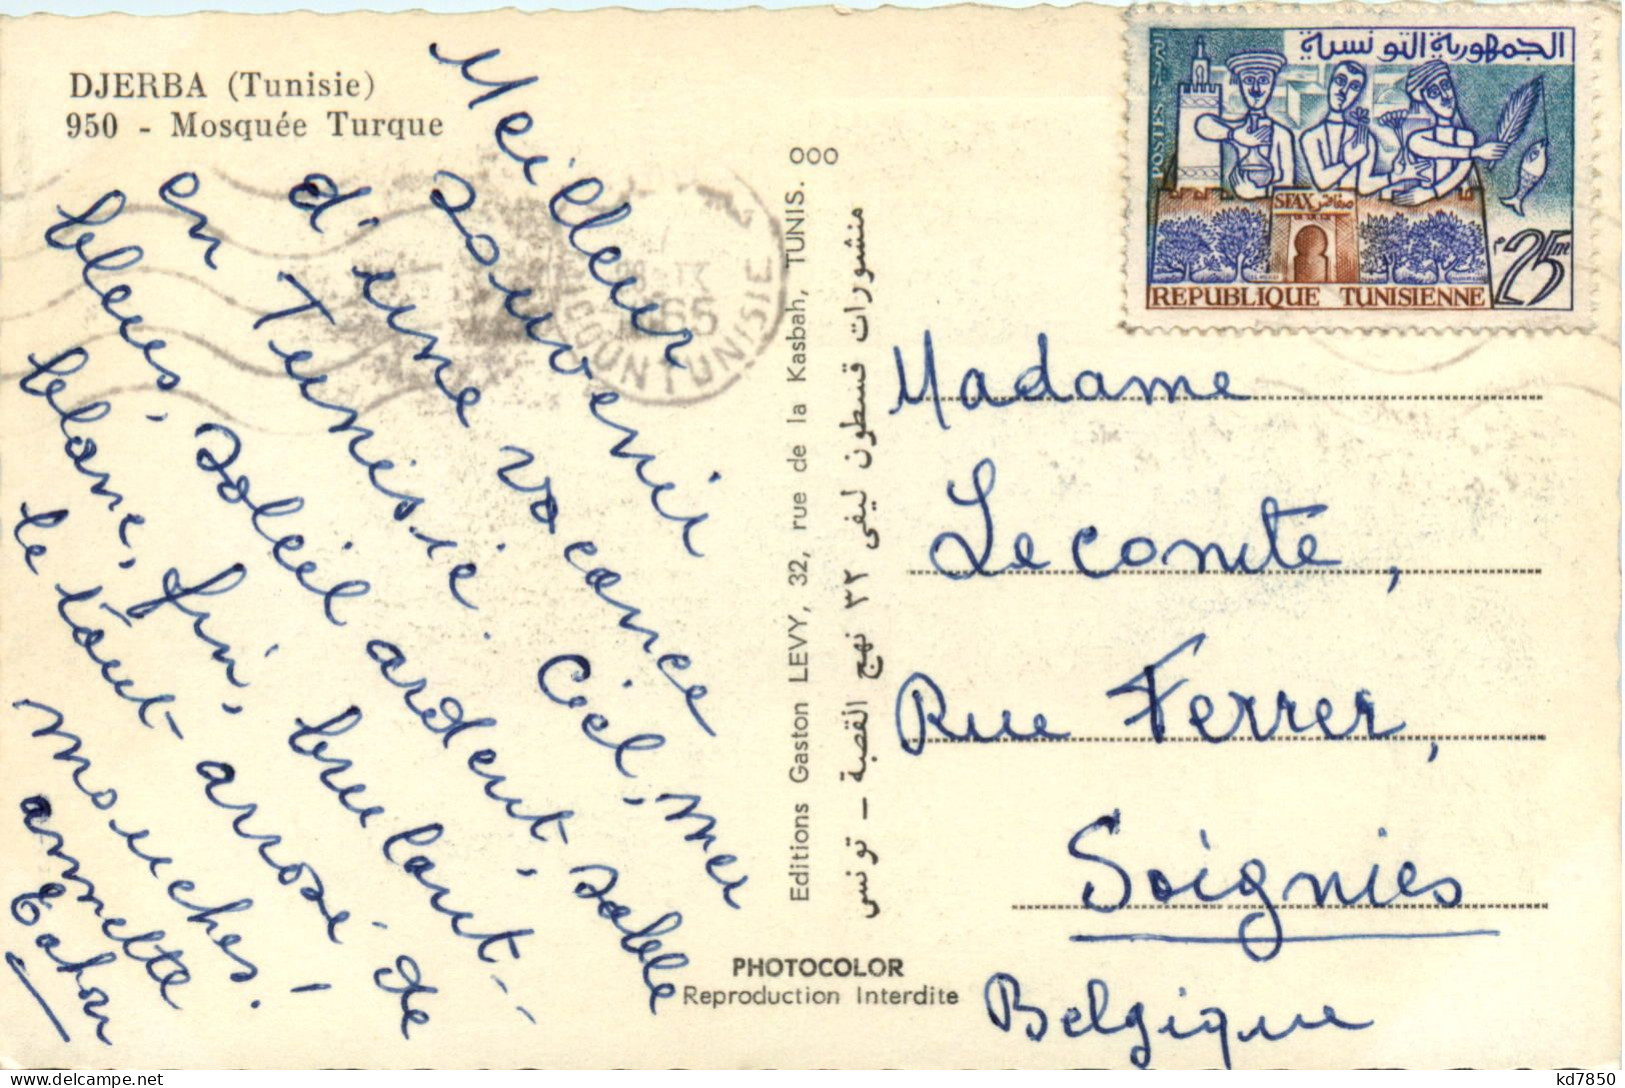 DJERBA (Tunisie)
950 - Mosquée Turque
Meilleur
souvenir
d'une vacance
en Tunisie. Ciel, mer
bleus, soleil ardent, sable
blanc, fin, brulant --
le tout arrosé de
mouches!
annette
Editions Gaston LEVY, 32, rue de la Kasbah, TUNIS. 000
منشورات قسطون ليفي ٣٢ نهج القصبة – تونس
PHOTOCOLOR
Reproduction Interdite
الجمهورية التونسية
POSTES
SFAX صفاقس
25m
REPUBLIQUE TUNISIENNE
1965
TUNISIE
Madame
Lecomte,
Rue Ferrer,
Soignies
Belgique
kd7850